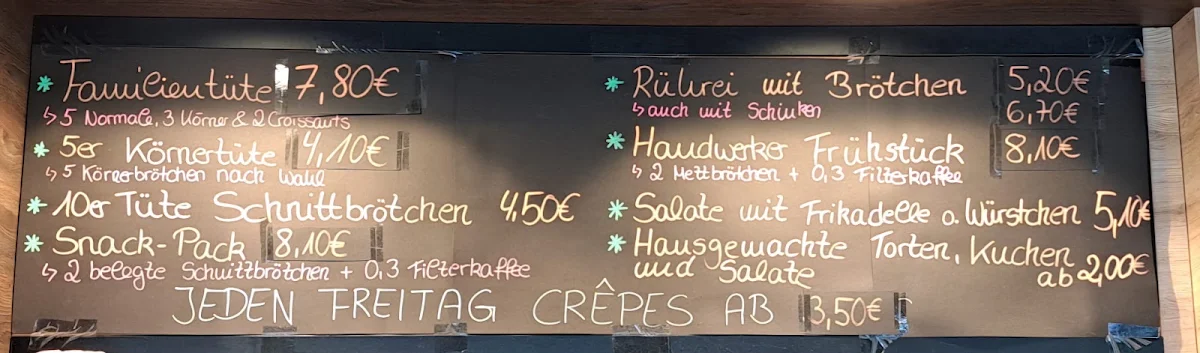 * Familientüte 7,80€
↳ 5 Normale, 3 Körner & 2 Croissants
* 5er Körnertüte 4,10€
↳ 5 Körnerbrötchen nach Wahl
* 10er Tüte Schnittbrötchen 4,50€
* Snack-Pack 8,10€
↳ 2 belegte Schnittbrötchen + 0,3 Filterkaffee
* Rührei mit Brötchen 5,20€
↳ auch mit Schinken 6,70€
* Handwerker Frühstück 8,10€
↳ 2 Mettbrötchen + 0,3 Filterkaffee
* Salate mit Frikadelle o. Würstchen 5,10€
* Hausgemachte Torten, Kuchen
und Salate ab 2,00€
JEDEN FREITAG CRÊPES AB 3,50€